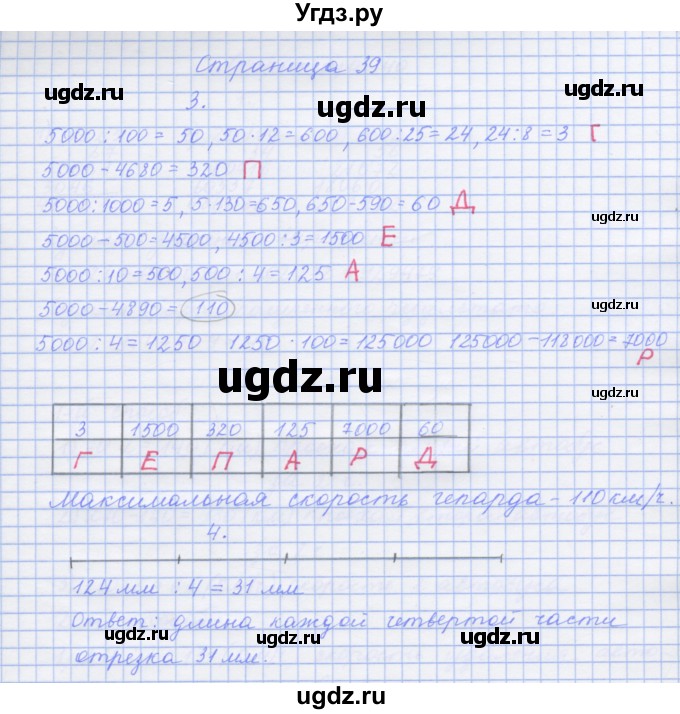 Угдз.ру
Страница 39
ugdz.ru
ugdz.ru
ugdz.ru
3.
5000 : 100 = 50, 50 · 12 = 600, 600 : 25 = 24, 24 : 8 = 3 Г
5000 - 4680 = 320 П
5000 : 1000 = 5, 5 · 130 = 650, 650 - 590 = 60 Д
ugdz.ru
5000 - 500 = 4500, 4500 : 3 = 1500 Е
5000 : 10 = 500, 500 : 4 = 125 А
5000 - 4890 = 110
ugdz.ru
ugdz.ru
5000 : 4 = 1250 1250 · 100 = 125000 125000 - 118000 = 7000
Р
ugdz.ru
3 1500 320 125 7000 60
Г Е П А Р Д
Максимальная скорость гепарда - 110 км/ч.
ugdz.ru
4.
124 мм : 4 = 31 мм
ugdz.ru
Ответ: длина каждой четвертой части
ugdz.ru
ugdz.ru
отрезка 31 мм.
ugdz.ru
ugdz.ru